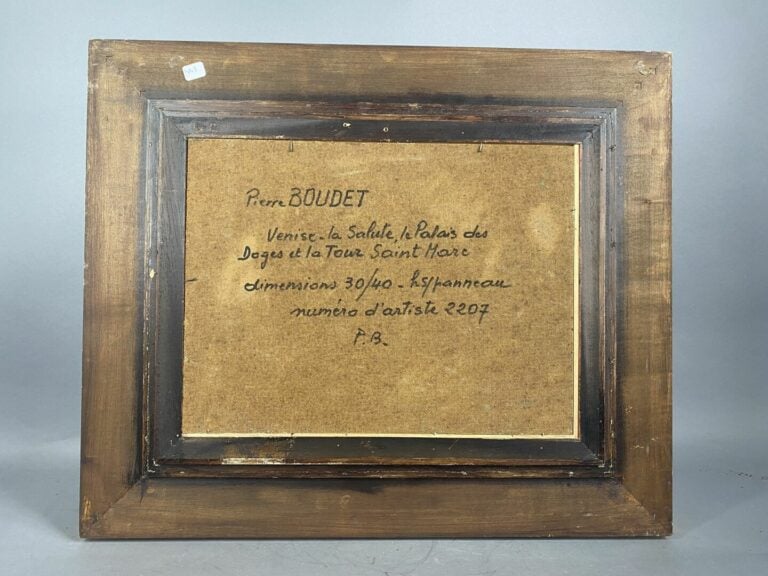 Pierre BOUDET
Venise - la Salute, le Palais des
Doges et la Tour Saint Marc
dimensions 30/40 - hs/panneau
numéro d'artiste 2207
P.B.